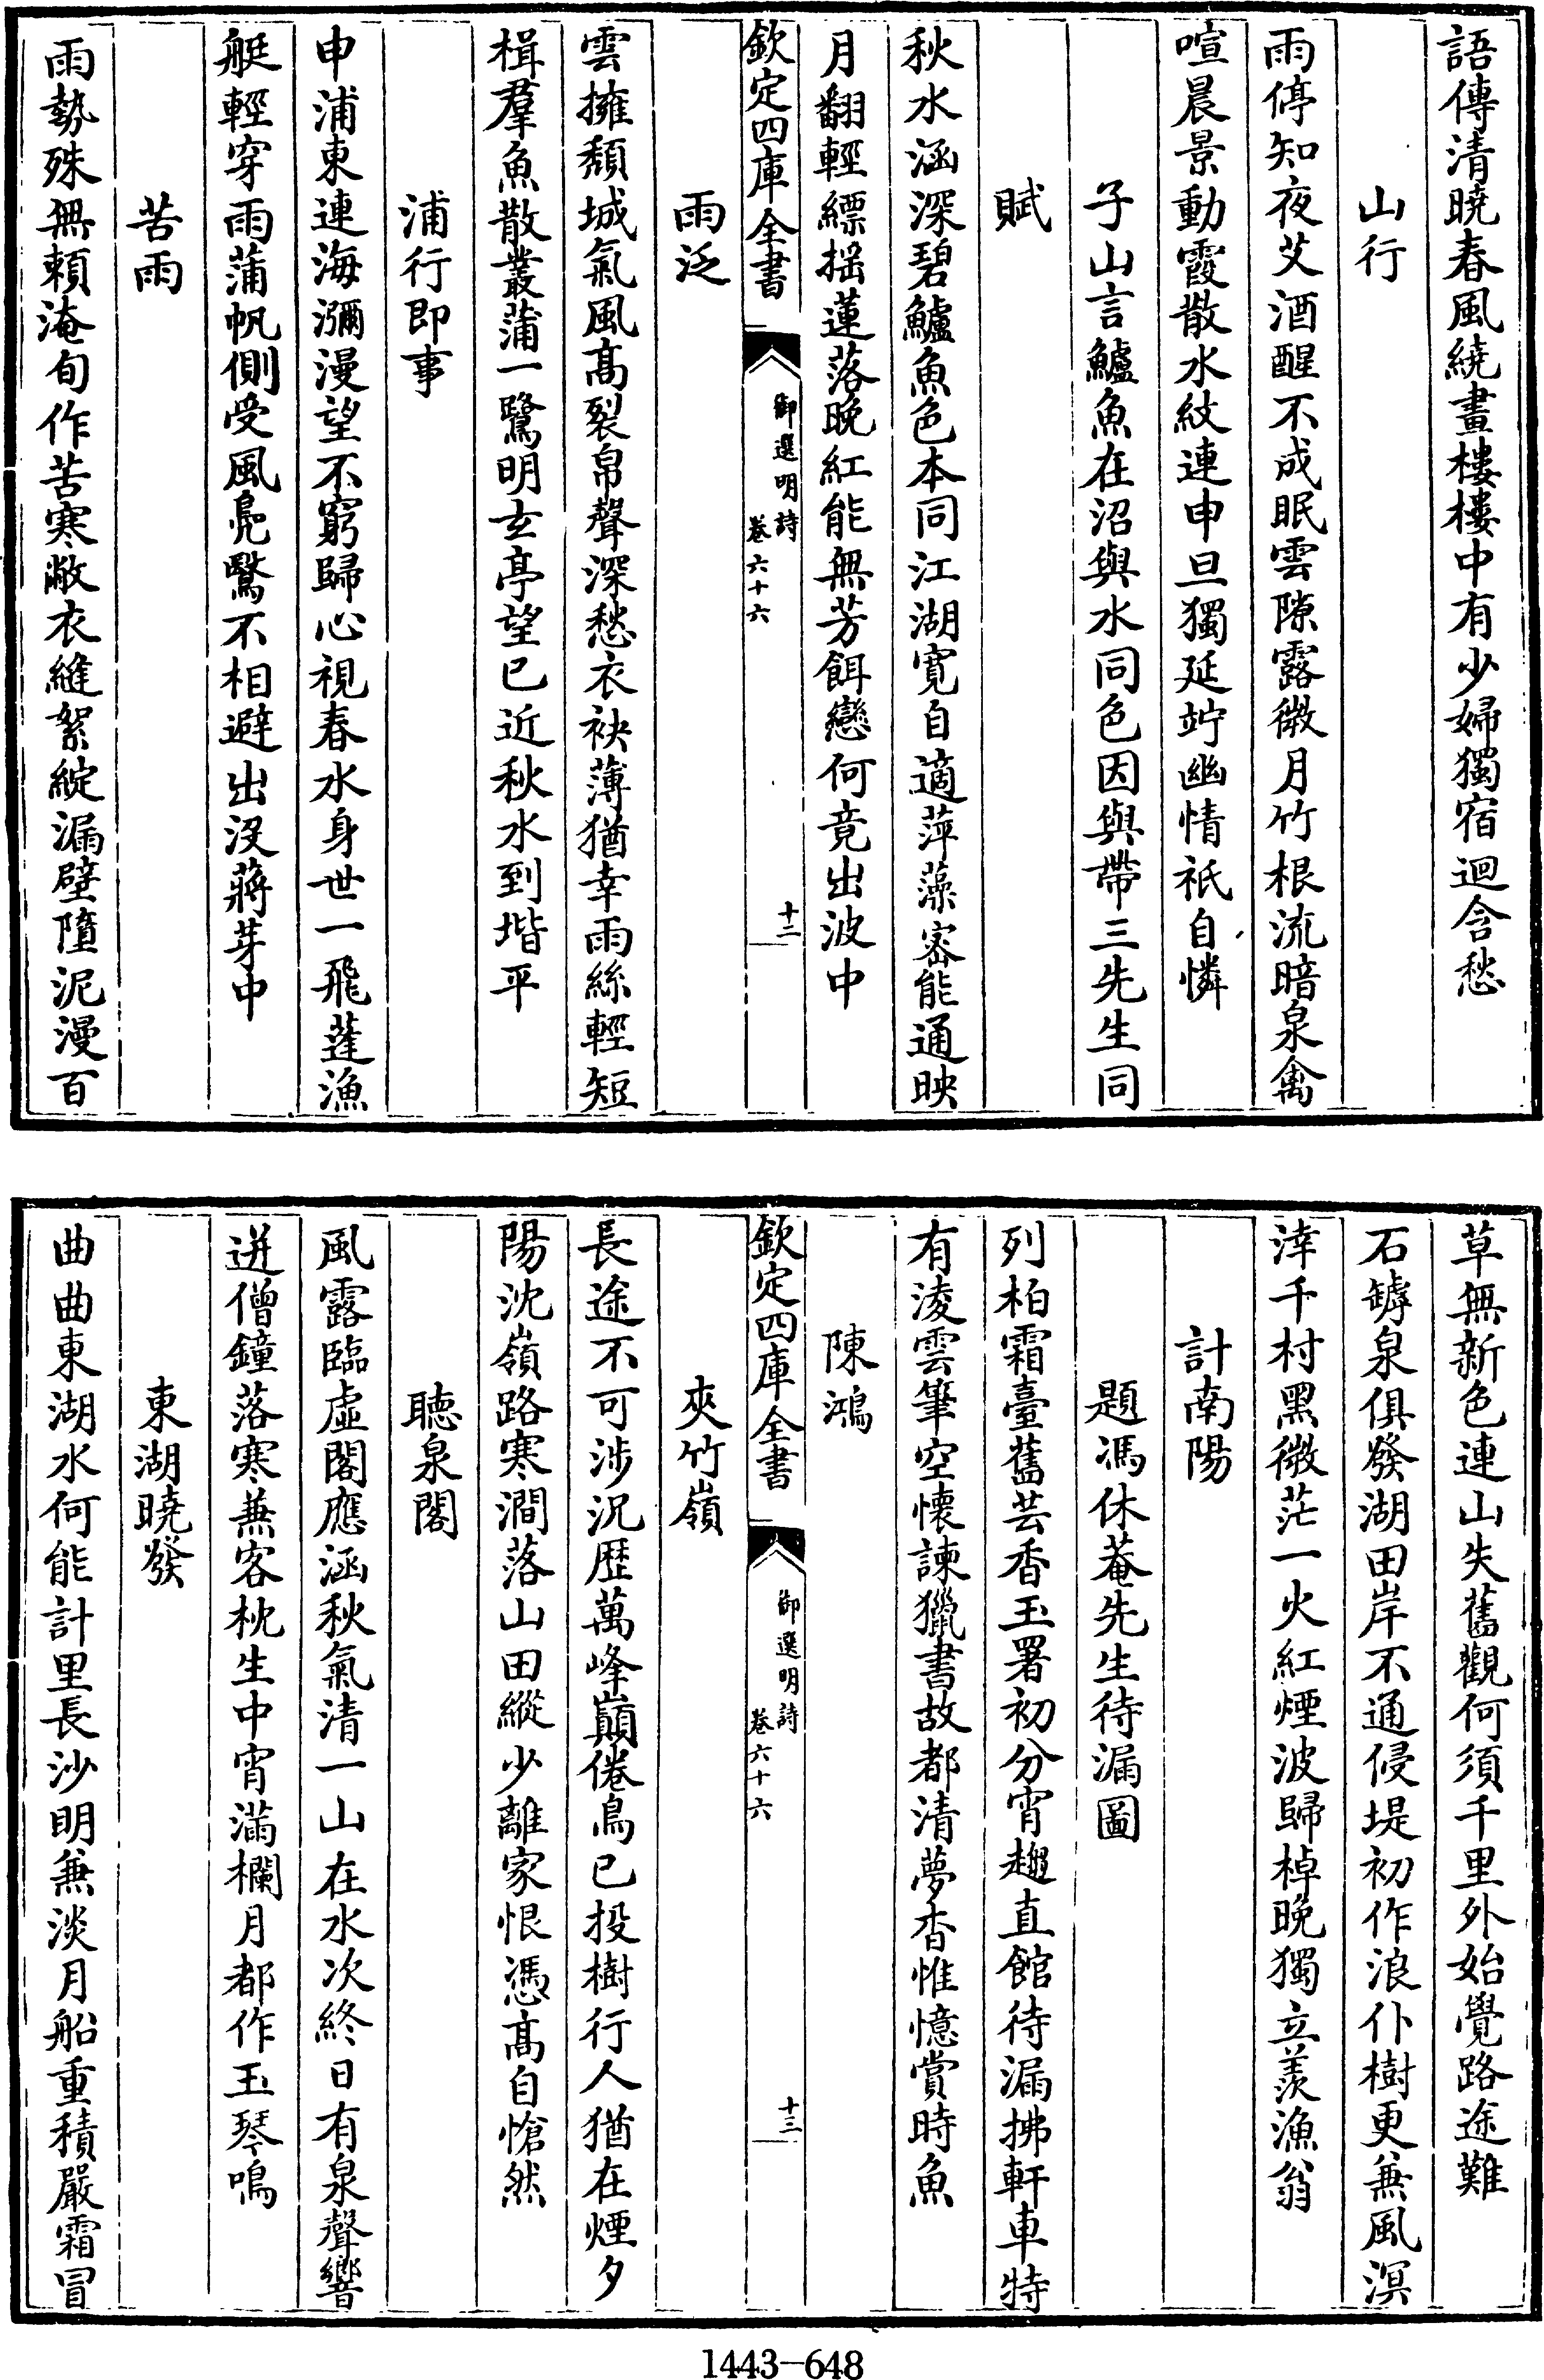 語傳清曉春風繞畫樓樓中有少婦獨宿迴含愁
山行
雨停知夜艾酒醒不成眠雲隙露微月竹根流暗泉禽
喧晨景動霞散水紋連申旦獨延竚幽情祇自憐
子山言鱸魚在沼與水同色因與帶三先生同
賦
秋水涵深碧鱸魚色本同江湖寛自適萍藻宻能通映
月翻輕縹揺蓮落晚紅能無芳餌戀何竟出波中
欽定四庫全書
御選明詩
卷六十六
十二
雨泛
雲擁頽城氣風髙裂帛聲深愁衣袂薄猶幸雨絲輕短
楫羣魚散叢蒲一鷺明玄亭望已近秋水到堦平
浦行即事
申浦東連海瀰漫望不窮歸心視春水身世一飛蓬漁
艇輕穿雨蒲帆側受風鳧鷖不相避出没蔣芽中
苦雨
雨勢殊無賴淹旬作苦寒敝衣縫絮綻漏壁墮泥漫百
草無新色連山失舊觀何須千里外始覺路途難
石罅泉俱發湖田岸不通侵堤初作浪仆樹更兼風溟
涬千村黑微茫一火紅煙波歸棹晚獨立羨漁翁
計南陽
題馮休菴先生待漏圖
列柏霜臺舊芸香玉署初分宵趨直館待漏拂軒車特
有淩雲筆空懷諫獵書故都清夢杳惟憶賞時魚
陳鴻
欽定四庫全書
御選明詩
卷六十六
十三
夾竹嶺
長途不可涉況歴萬峰巔倦鳥已投樹行人猶在煙夕
陽沈嶺路寒澗落山田縱少離家恨憑髙自愴然
聴泉閣
風露臨虛閣應涵秋氣清一山在水次終日有泉聲響
迸僧鐘落寒兼客枕生中宵滿欄月都作玉琴鳴
東湖曉發
曲曲東湖水何能計里長沙明兼淡月船重積嚴霜冒
1443-648